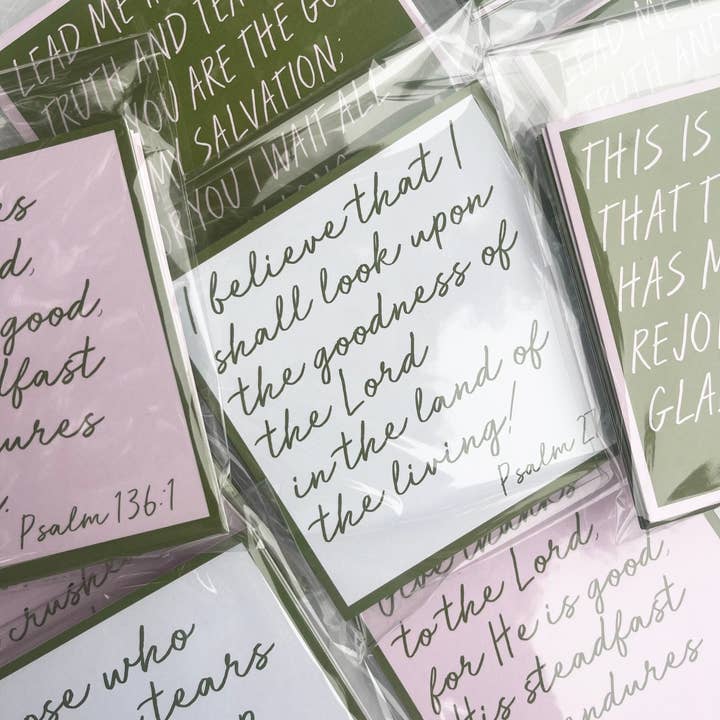 LEAD ME IN
TRUTH AND TEA
YOU ARE THE GO
MY SALVATION;
FOR YOU I WAIT ALL
LEAD ME
TRUTH AND
es
d,
good,
fast
ures
Psalm 136:1
I believe that I
shall look upon
the goodness of
the Lord
in the land of
the living!
Psalm
THIS IS
THAT T
HAS M
REJO
GLA
crushe
ose who
tears
to the Lord,
for He is good,
His steadfast
endures